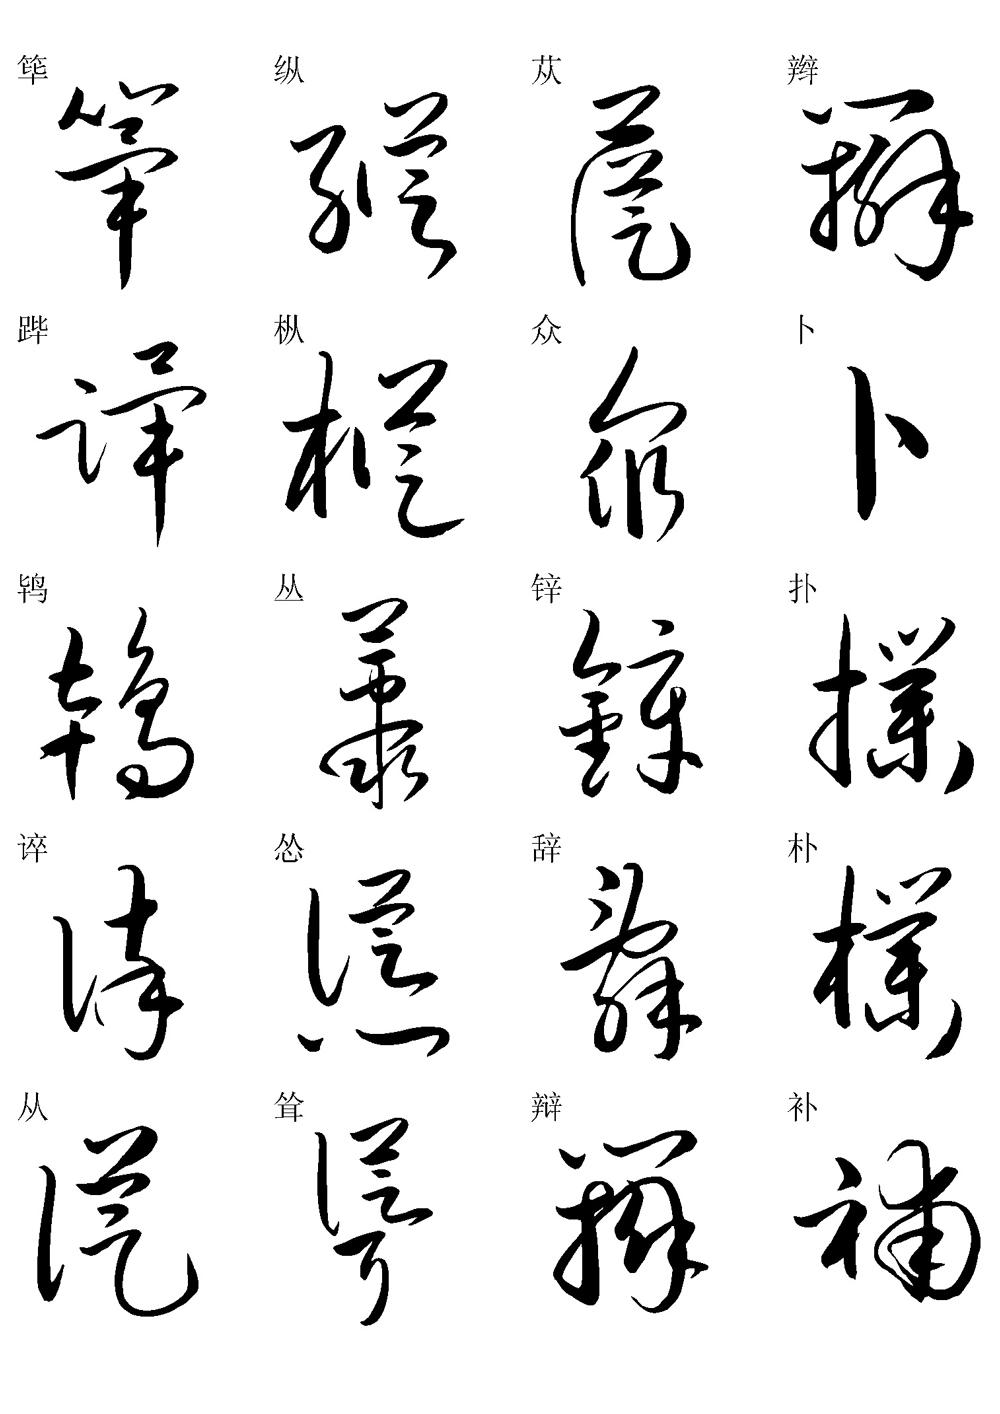 筚 纵 苁 辫
跸 枞 众 卜
鸨 丛 锌 扑
谇 怂 辞 朴
从 耸 辩 补